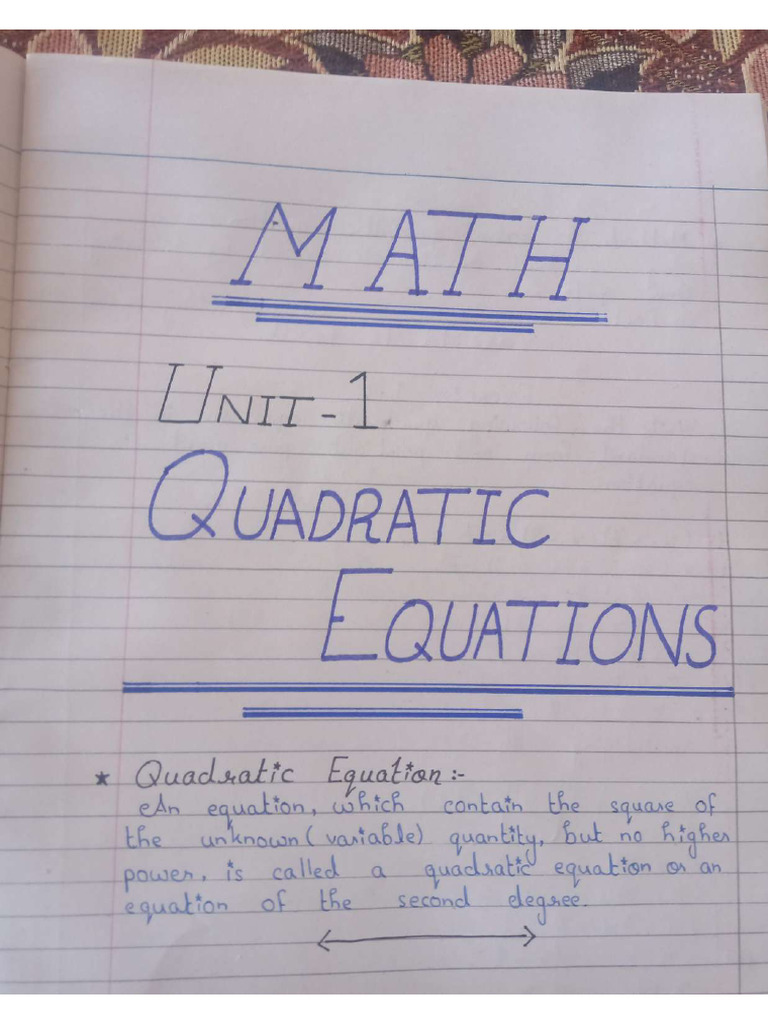 MATH
UNIT-1
QUADRATIC
EQUATIONS
* Quadratic Equation :-
An equation, which contain the square of
the unknown (variable) quantity, but no higher
power, is called a quadratic equation or an
equation of the second degree.